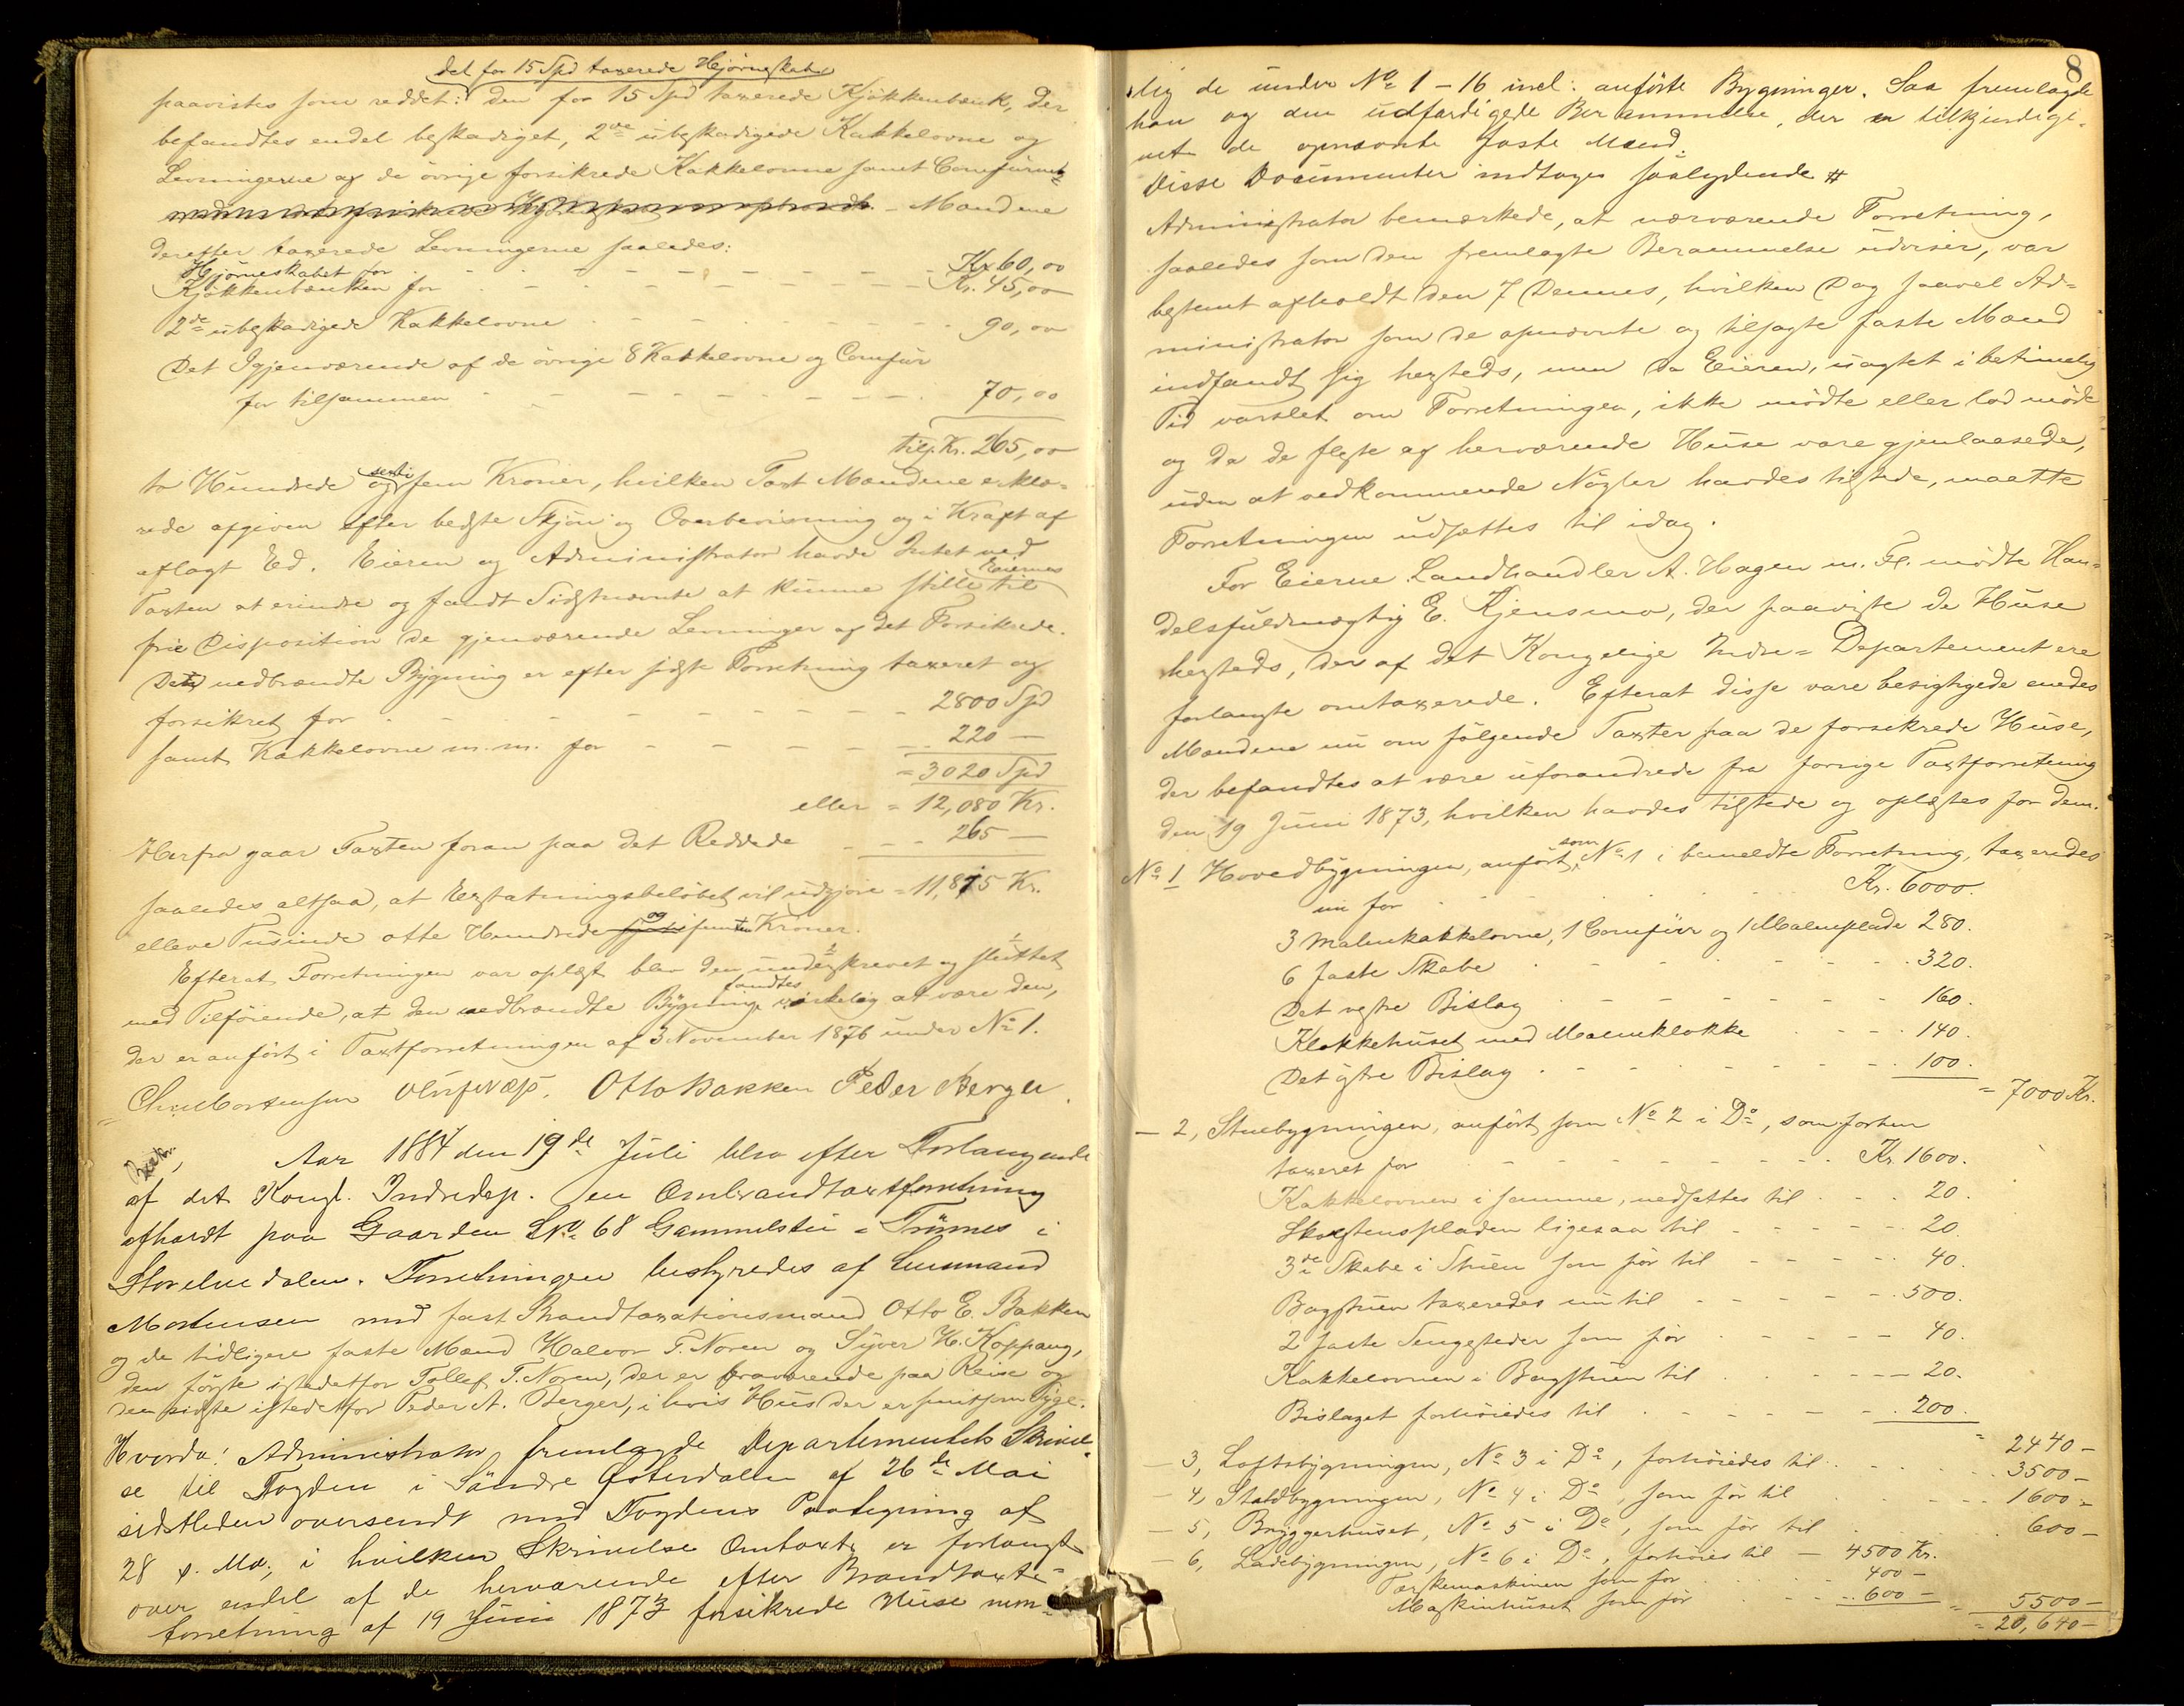 det for 15 Spd taxerede Hjørneskab
paavistes som reddet: den for 15 Spd taxerede Kjøkkenbænk, der
befandtes endel beskadiget, 2de ubeskadigede Kakkelovne og
Levningerne af de øvrige forsikrede Kakkelovne samt Comfuret
- Mændene
derefter taxerede Levningerne saaledes:
Hjørneskabet for - - - Kr. 60,00
Kjøkkenbænken for - - - Kr. 45,00
2de ubeskadigede Kakkelovne - - - 90,00
Det Igjenværende af de øvrige 8 Kakkelovne og Comfür
for tilsammen - - - 70,00
tils. Kr. 265,00
to Hundrede og sexti fem Kroner, hvilken Taxt Mændene erklæ-
rede afgiven efter bedste Skjøn og Overbevisning og i Kraft af
aflagt Ed. Eieren og Administrator havde Intet ved
Taxten at erindre og fandt Sidstnævnte at kunne stille til Eierens
frie Disposition de gjenværende Levninger af det Forsikrede.
Den nedbrændte Bygning er efter sidste Forretning taxeret og
forsikret for - - - 2800 Spd
samt Kakkelovne m.m. for - - - 220 —
= 3020 Spd
eller = 12,080 Kr.
Herfra gaar Taxten foran paa det Reddede - - - 265 —
saaledes altsaa, at Erstatningsbeløbet vil udgjøre = 11,815 Kr.
elleve Tusinde otte Hundrede og femten Kroner.
Efterat Forretningen var oplæst blev den underskrevet og sluttet
med Tilføiende, at den nedbrændte Bygning fandtes virkelig at være den,
der er anført i Taxtforretningen af 3 November 1876 under No 1.
Otto Bakken Peder Berger.
Aar 1884 den 19de Juli blev efter Forlangende
af det Kongl. Indredep. en Ombrandtaxtforretning
afholdt paa Gaarden LNo 68 Gammelstu - Trønnes i
Storelvedalen. Forretningen bestyredes af Lensmand
Mortensen med fast Brandtaxationsmand Otto E. Bakken
og de tidligere faste Mænd Halvor T. Noren og Syver H. Koppang,
den første istedetfor Tollef T. Noren, der er fraværende paa Reise og
den sidste istedetfor Peder A. Berger, i hvis Hus der er smitsom Syge.
Hvorda: Administrator fremlagde Departementets Skrivel-
se til Fogden i Søndre Østerdalen af 26de Mai
sidstleden oversendt med Fogdens Paategning af
28 s. Md., i hvilken Skrivelse Omtaxt er forlangt
over endel af de herværende efter Brandtaxt-
forretning af 19 Juni 1873 forsikrede Huse nem-
8
lig de under No 1 - 16 incl: anførte Bygninger. Saa fremlagde
han og den udfærdigede Berammelse, der er tilkjendegi-
vet de opnævnte faste Mænd.
Disse Documenter indtages saalydende #
Administrator bemærkede, at nærværende Forretning,
saaledes som den fremlagte Berammelse udviser, var
bestemt afholdt den 7 Dennes, hvilken Dag saavel Ad-
ministrator som de opnævnte og tilsagte faste Mænd
indfandt sig hersteds, men da Eieren, uagtet i betimelig
Tid varslet om Forretningen, ikke mødte eller lod møde
og da de fleste af herværende Huse vare gjenlaasede,
uden at vedkommende Nøgler havdes tilstede, maatte
Forretningen udsættes til idag.
For Eierne Landhandler A. Hagen m. Fl. mødte Han-
delsfuldmægtig E. Kjensmo, der paaviste de Huse
hersteds, der af det Kongelige Indre-Departement ere
forlangte omtaxerede. Efterat disse vare besigtigede enedes
Mændene nu om følgende Taxter paa de forsikrede Huse,
der befandtes at være uforandrede fra forrige Taxtforretning
den 19 Juni 1873, hvilken havdes tilstede og oplæstes for dem.
No 1 Hovedbygningen, anført som No 1 i bemeldte Forretning, taxeredes
nu for - - - Kr. 6000.
3 Malmkakkelovne, 1 Comfür og 1 Malmplade 280.
6 faste Skabe - - - 320.
Det vestre Bislag - - - 160.
Klokkehuset med Malmklokke - - - 140.
Det østre Bislag - - - 100.
= 7000 Kr.
— 2, Stuebygningen, anført som No 2 i Do, som forhen
taxeret for - - - Kr. 1600.
Kakkelovnen i samme, nedsættes til - - - 20.
Skorstenspladen ligesaa til - - - 20.
3de Skabe i Stuen som før til - - - 40.
Bagstuen taxeredes nu til - - - 500.
2 faste Sengesteder som før - - - 40.
Kakkelovnen i Bagstuen til - - - 20.
Bislaget forhøiedes til - - - 200.
= 2440 —
— 3, Loftsbygningen, No 3 i Do, forhøiedes til - - - 3500 —
— 4, Staldbygningen, No 4 i Do, som før til - - - 1600 —
— 5, Bryggerhuset, No 5 i Do, som før til - - - 600 —
— 6, Ladebygningen, No 6 i Do, forhøies til — 4500 Kr.
Tærskemaskinen som før - - - 400 —
Maskinhuset som før - - - 600 — = 5500 —
= 20,640 —